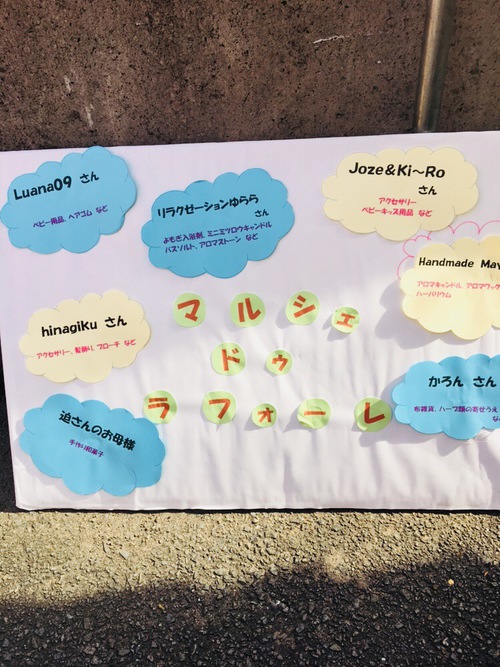 Luana09 さん
ベビー用品、ヘアゴム など
リラクゼーションゆらら
さん
よもぎ入浴剤、ミニミツロウキャンドル
バスソルト、アロマストーン など
Joze&Ki~Ro
さん
アクセサリー
ベビーキッズ用品 など
Handmade May
アロマキャンドル、アロマワック
ハーバリウム
hinagiku さん
アクセサリー、髪飾り、ブローチ など
マルシェ
ドゥ
ラフォーレ
かろん さん
布雑貨、ハーブ類の寄せうえ
な
迫さんのお母様
手作り和菓子